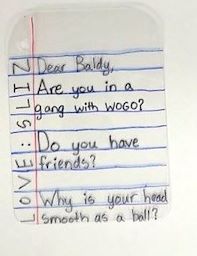 Dear Baldy,
Are you in a
gang with WOGO?
Do you have
friends?
Why is your head
smooth as a ball?
LOVE: